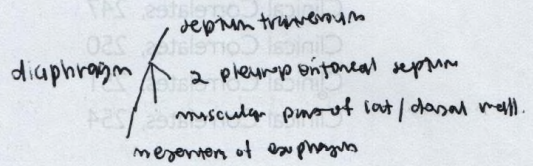 septum transversum
diaphragm
2 pleuroperitoneal septum
muscular parts of lat / dorsal wall.
mesentery of esophagus
Clinical Correlates, 247
Clinical Correlates, 250
Clinical Correlates, 251
Clinical Correlates, 254